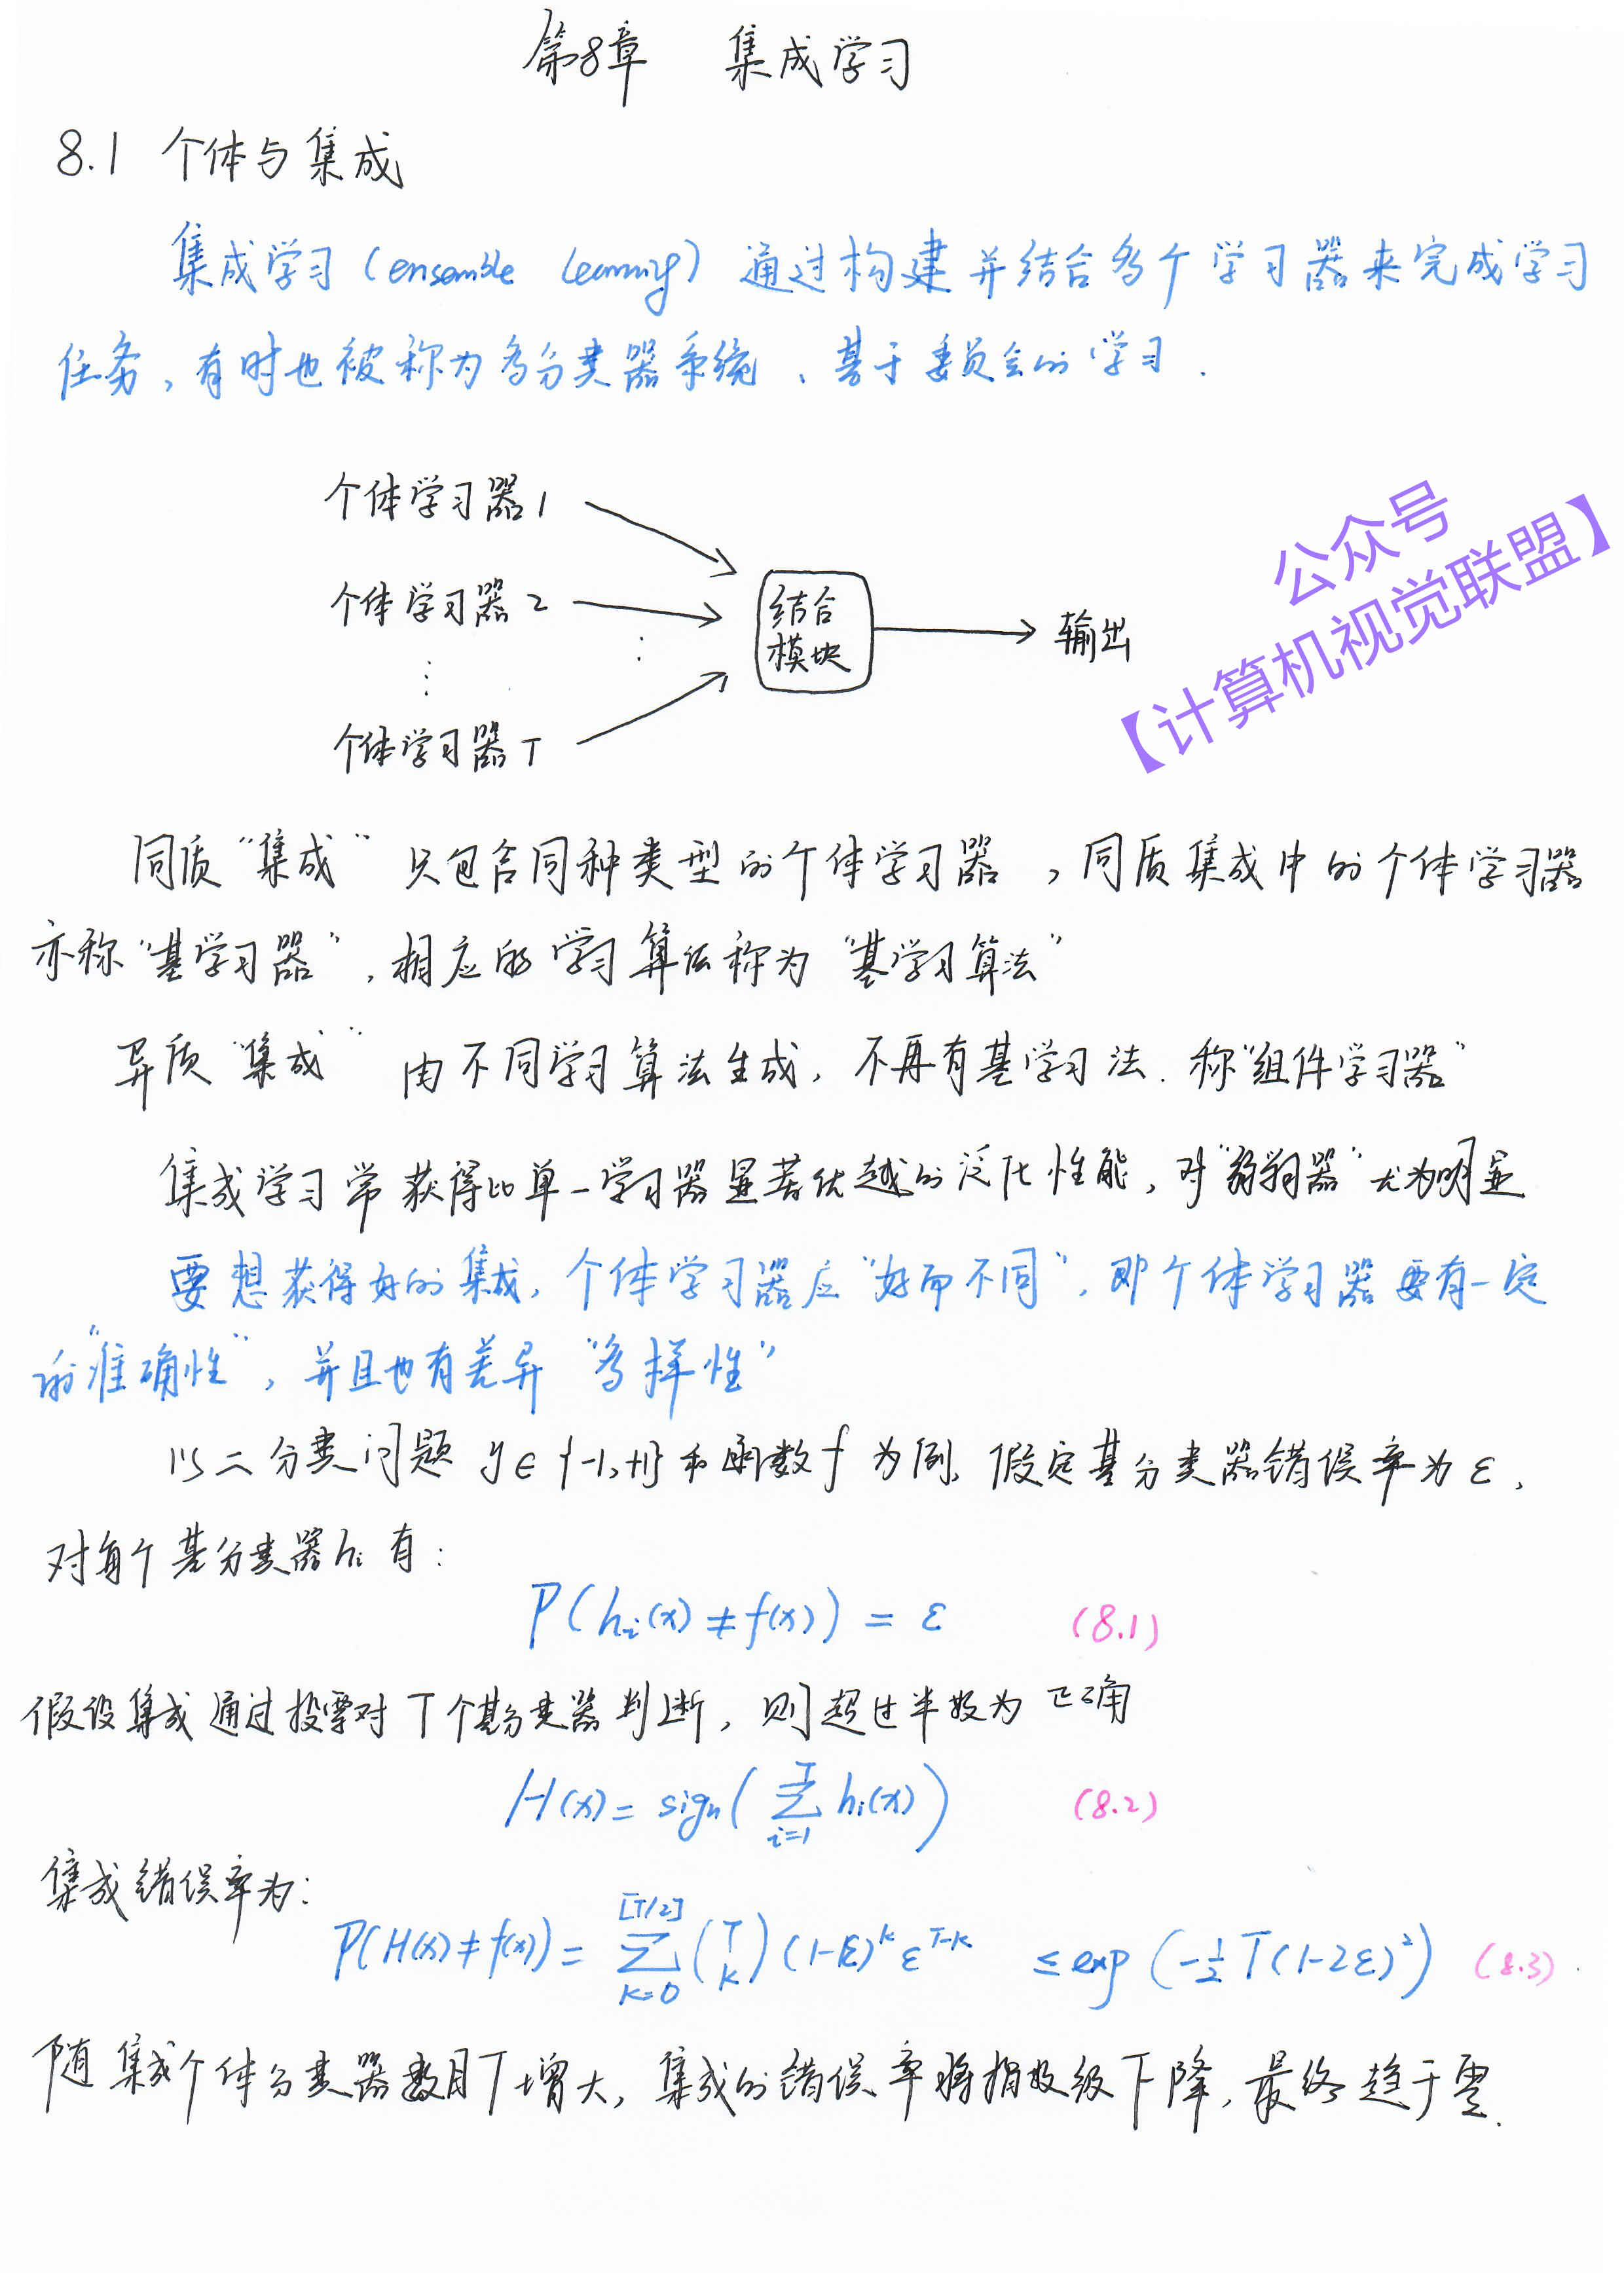 第8章 集成学习
8.1 个体与集成
集成学习(ensemble learning)通过构建并结合多个学习器来完成学习
任务,有时也被称为多分类器系统、基于委员会的学习.
个体学习器1
个体学习器2
结合
模块
输出
⋮
个体学习器T
公众号
【计算机视觉联盟】
同质"集成" 只包含同种类型的个体学习器,同质集成中的个体学习器
亦称"基学习器",相应的学习算法称为"基学习算法"
异质"集成" 由不同学习算法生成,不再有基学习法.称"组件学习器"
集成学习常获得比单一学习器显著优越的泛化性能,对"弱学习器"尤为明显
要想获得好的集成,个体学习器应"好而不同",即个体学习器要有一定
的"准确性",并且也有差异"多样性"
以二分类问题 y∈{-1,+1}和函数f为例,假定基分类器错误率为ε,
对每个基分类器hi有:
P(hi(x)≠f(x)) = ε (8.1)
假设集成通过投票对T个基分类器判断,则超过半数为正确
H(x)= sign(∑_{i=1}^{T} hi(x)) (8.2)
集成错误率为:
P(H(x)≠f(x)) = ∑_{k=0}^{[T/2]} (T k) (1-ε)^k ε^{T-k} ≤ exp(-½T(1-2ε)²) (8.3)
随集成个体分类器数目T增大,集成的错误率将指数级下降,最终趋于零.